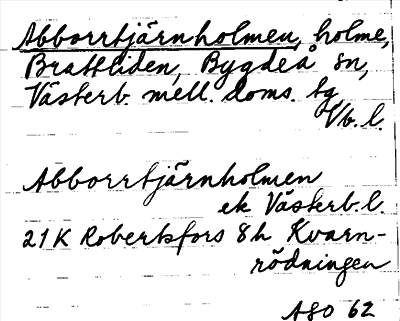 Abborrtjärnholmen, holme,
Brattliden, Bygdeå sn,
Västerb. mell. doms. tg
Vb. l.
Abborrtjärnholmen
ek Västerb. l.
21K Robertsfors 8h Kvarn-
rödningen
ASO 62